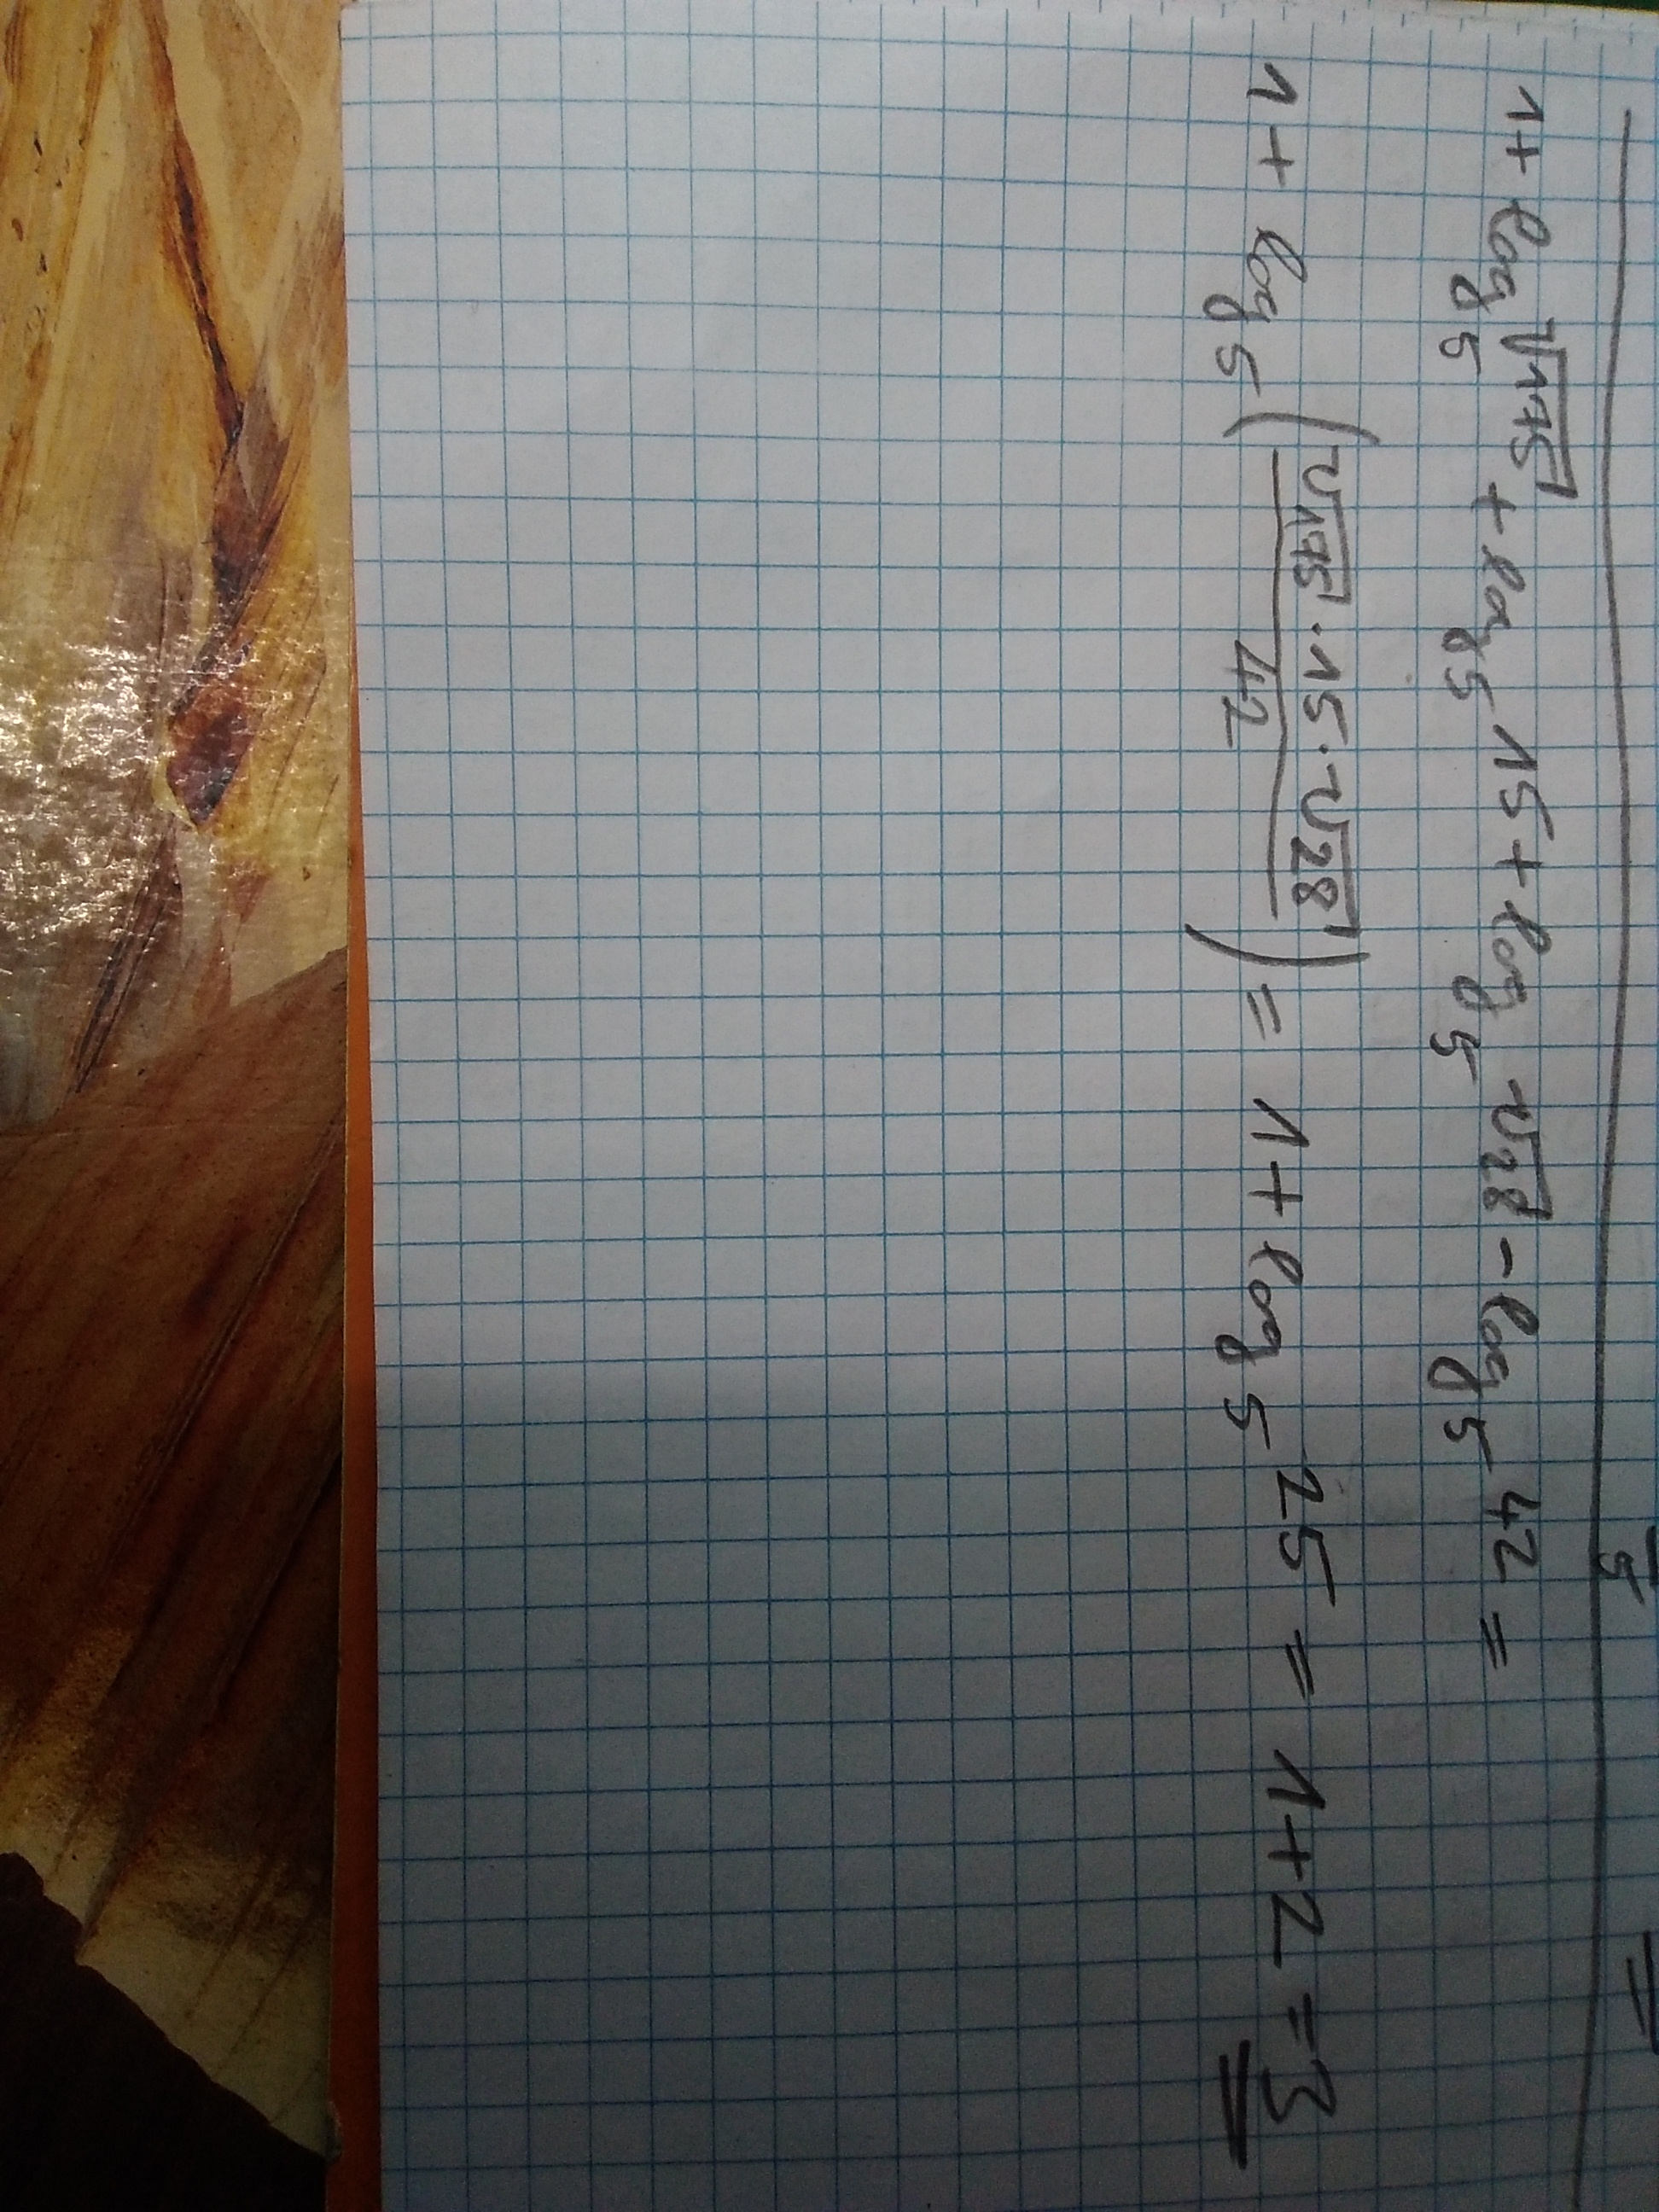 5
1 + log₅ √175 + log₅ 15 + log₅ √28 - log₅ 42 =
1 + log₅ (√175 · 15 · √28 / 42) = 1 + log₅ 25 = 1 + 2 = 3